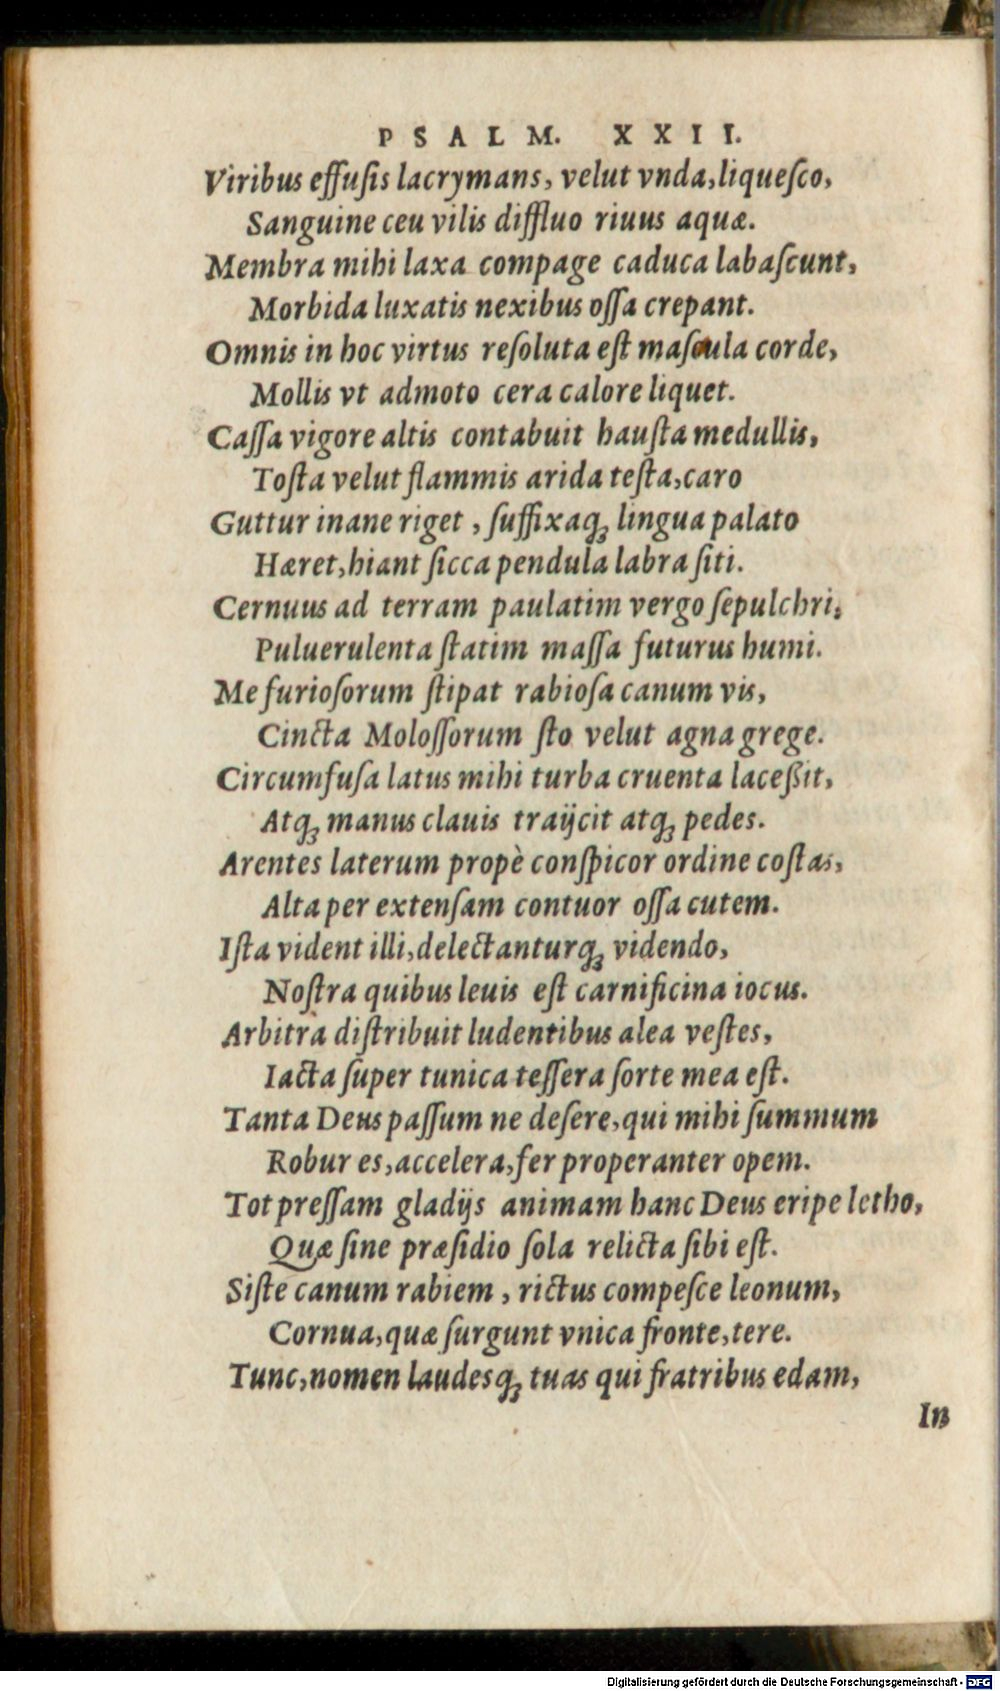 PSALM. XXII.
Viribus effuſis lacrymans, velut vnda, liqueſco,
Sanguine ceu vilis diffluo riuus aquæ.
Membra mihi laxa compage caduca labaſcunt,
Morbida luxatis nexibus oſſa crepant.
Omnis in hoc virtus reſoluta eſt maſcula corde,
Mollis vt admoto cera calore liquet.
Caſſa vigore altis contabuit hauſta medullis,
Toſta velut flammis arida teſta, caro
Guttur inane riget, ſuffixaq́ꝫ lingua palato
Hæret, hiant ſicca pendula labra ſiti.
Cernuus ad terram paulatim vergo ſepulchri,
Puluerulenta ſtatim maſſa futurus humi.
Me furioſorum ſtipat rabioſa canum vis,
Cincta Moloſſorum ſto velut agna grege.
Circumfuſa latus mihi turba cruenta laceßit,
Atqꝫ manus clauis traijcit atqꝫ pedes.
Arentes laterum propè conſpicor ordine coſtas,
Alta per extenſam contuor oſſa cutem.
Iſta vident illi, delectanturqꝫ videndo,
Noſtra quibus leuis eſt carnificina iocus.
Arbitra diſtribuit ludentibus alea veſtes,
Iacta ſuper tunica teſſera ſorte mea eſt.
Tanta Deus paſſum ne deſere, qui mihi ſummum
Robur es, accelera, fer properanter opem.
Tot preſſam gladijs animam hanc Deus eripe letho,
Quæ ſine præſidio ſola relicta ſibi eſt.
Siſte canum rabiem, rictus compeſce leonum,
Cornua, quæ ſurgunt vnica fronte, tere.
Tunc, nomen laudesqꝫ tuas qui fratribus edam,
In
Digitalisierung gefördert durch die Deutsche Forschungsgemeinschaft - DFG